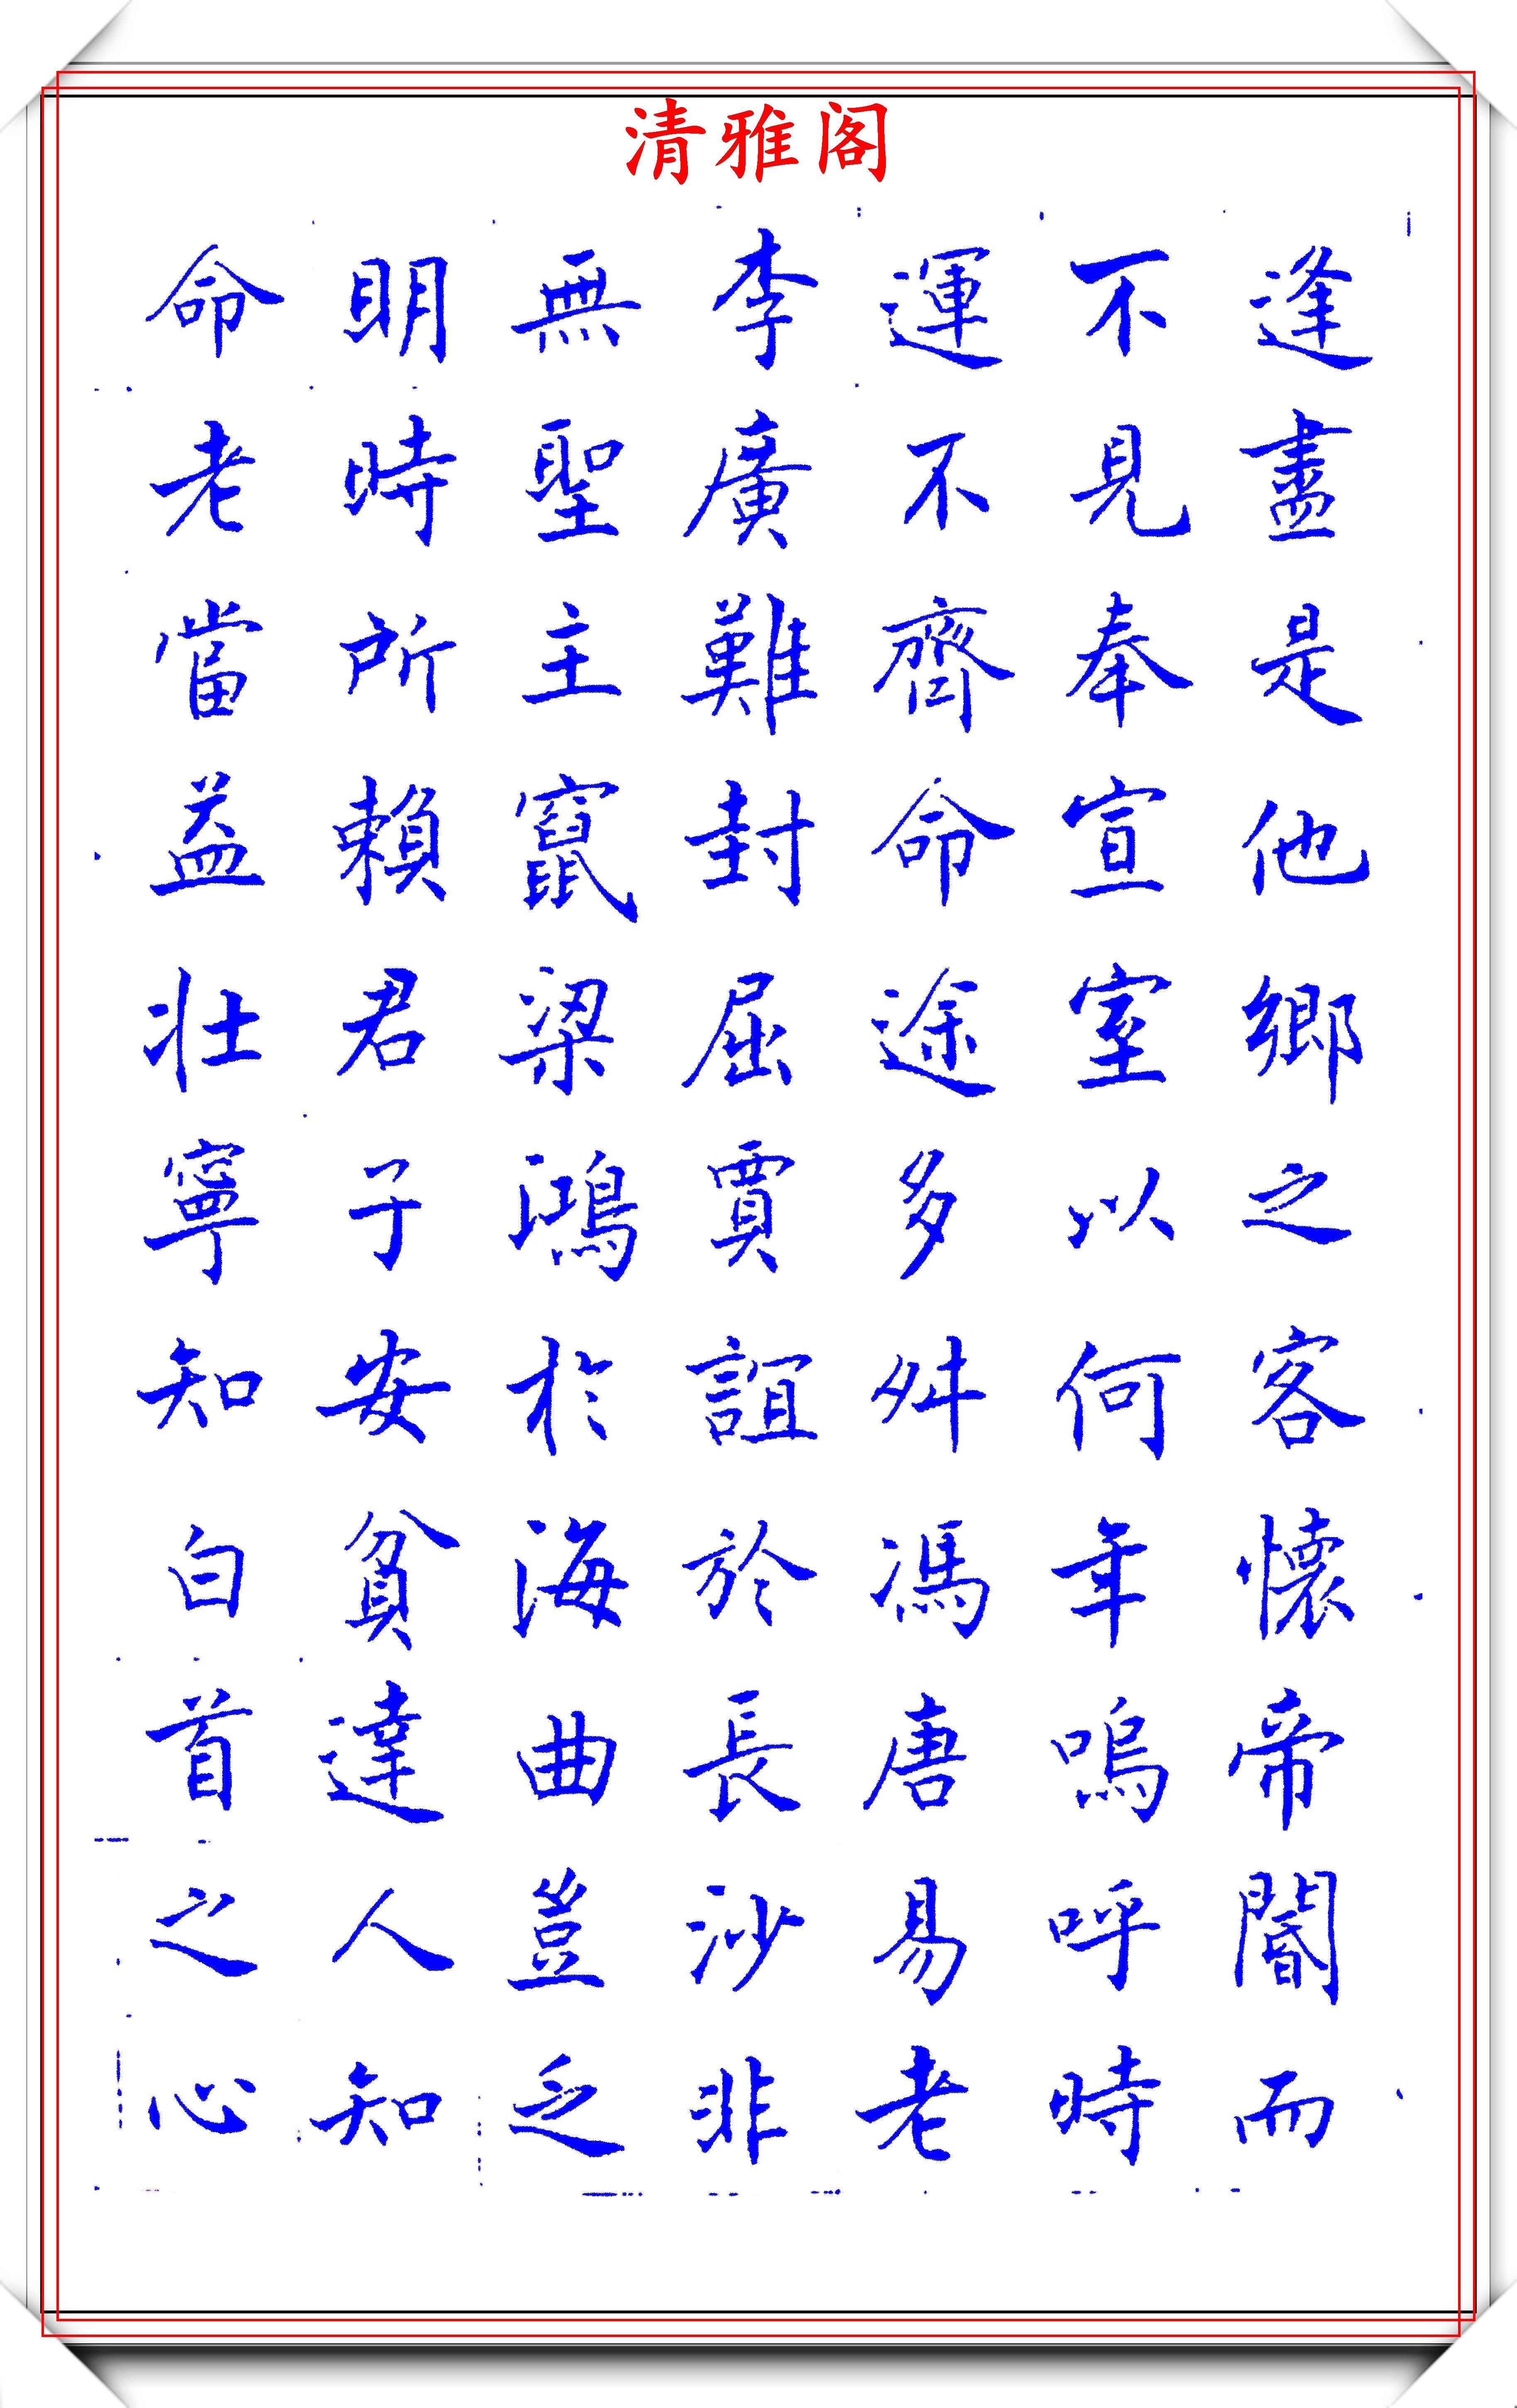 清雅阁
逢盡是他鄉之客懷帝閽而
不見奉宣室以何年嗚呼時
運不齊命途多舛馮唐易老
李廣難封屈賈誼於長沙非
無聖主竄梁鴻於海曲豈乏
明時所賴君子安貧達人知
命老當益壯寧知白首之心